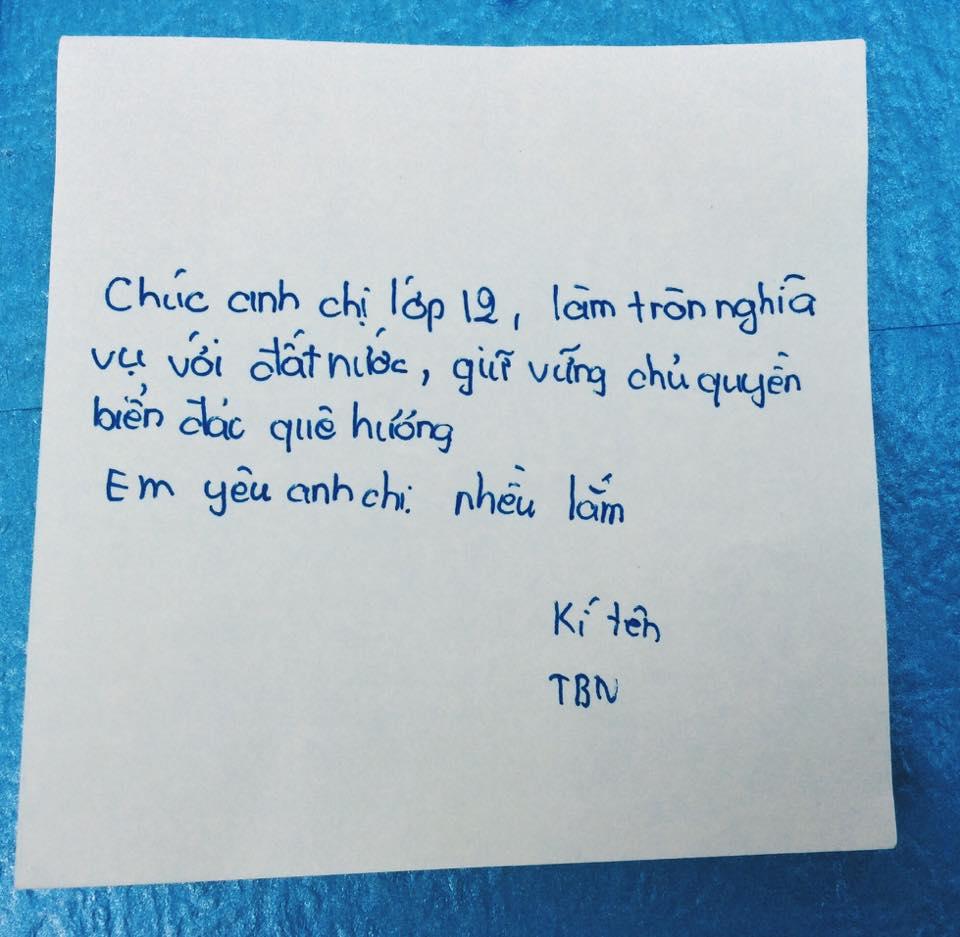 Chúc anh chị lớp 12, làm tròn nghĩa
vụ với đất nước, giữ vững chủ quyền
biển đác quê hướng
Em yêu anh chị nhều lắm
Kí tên
TBN